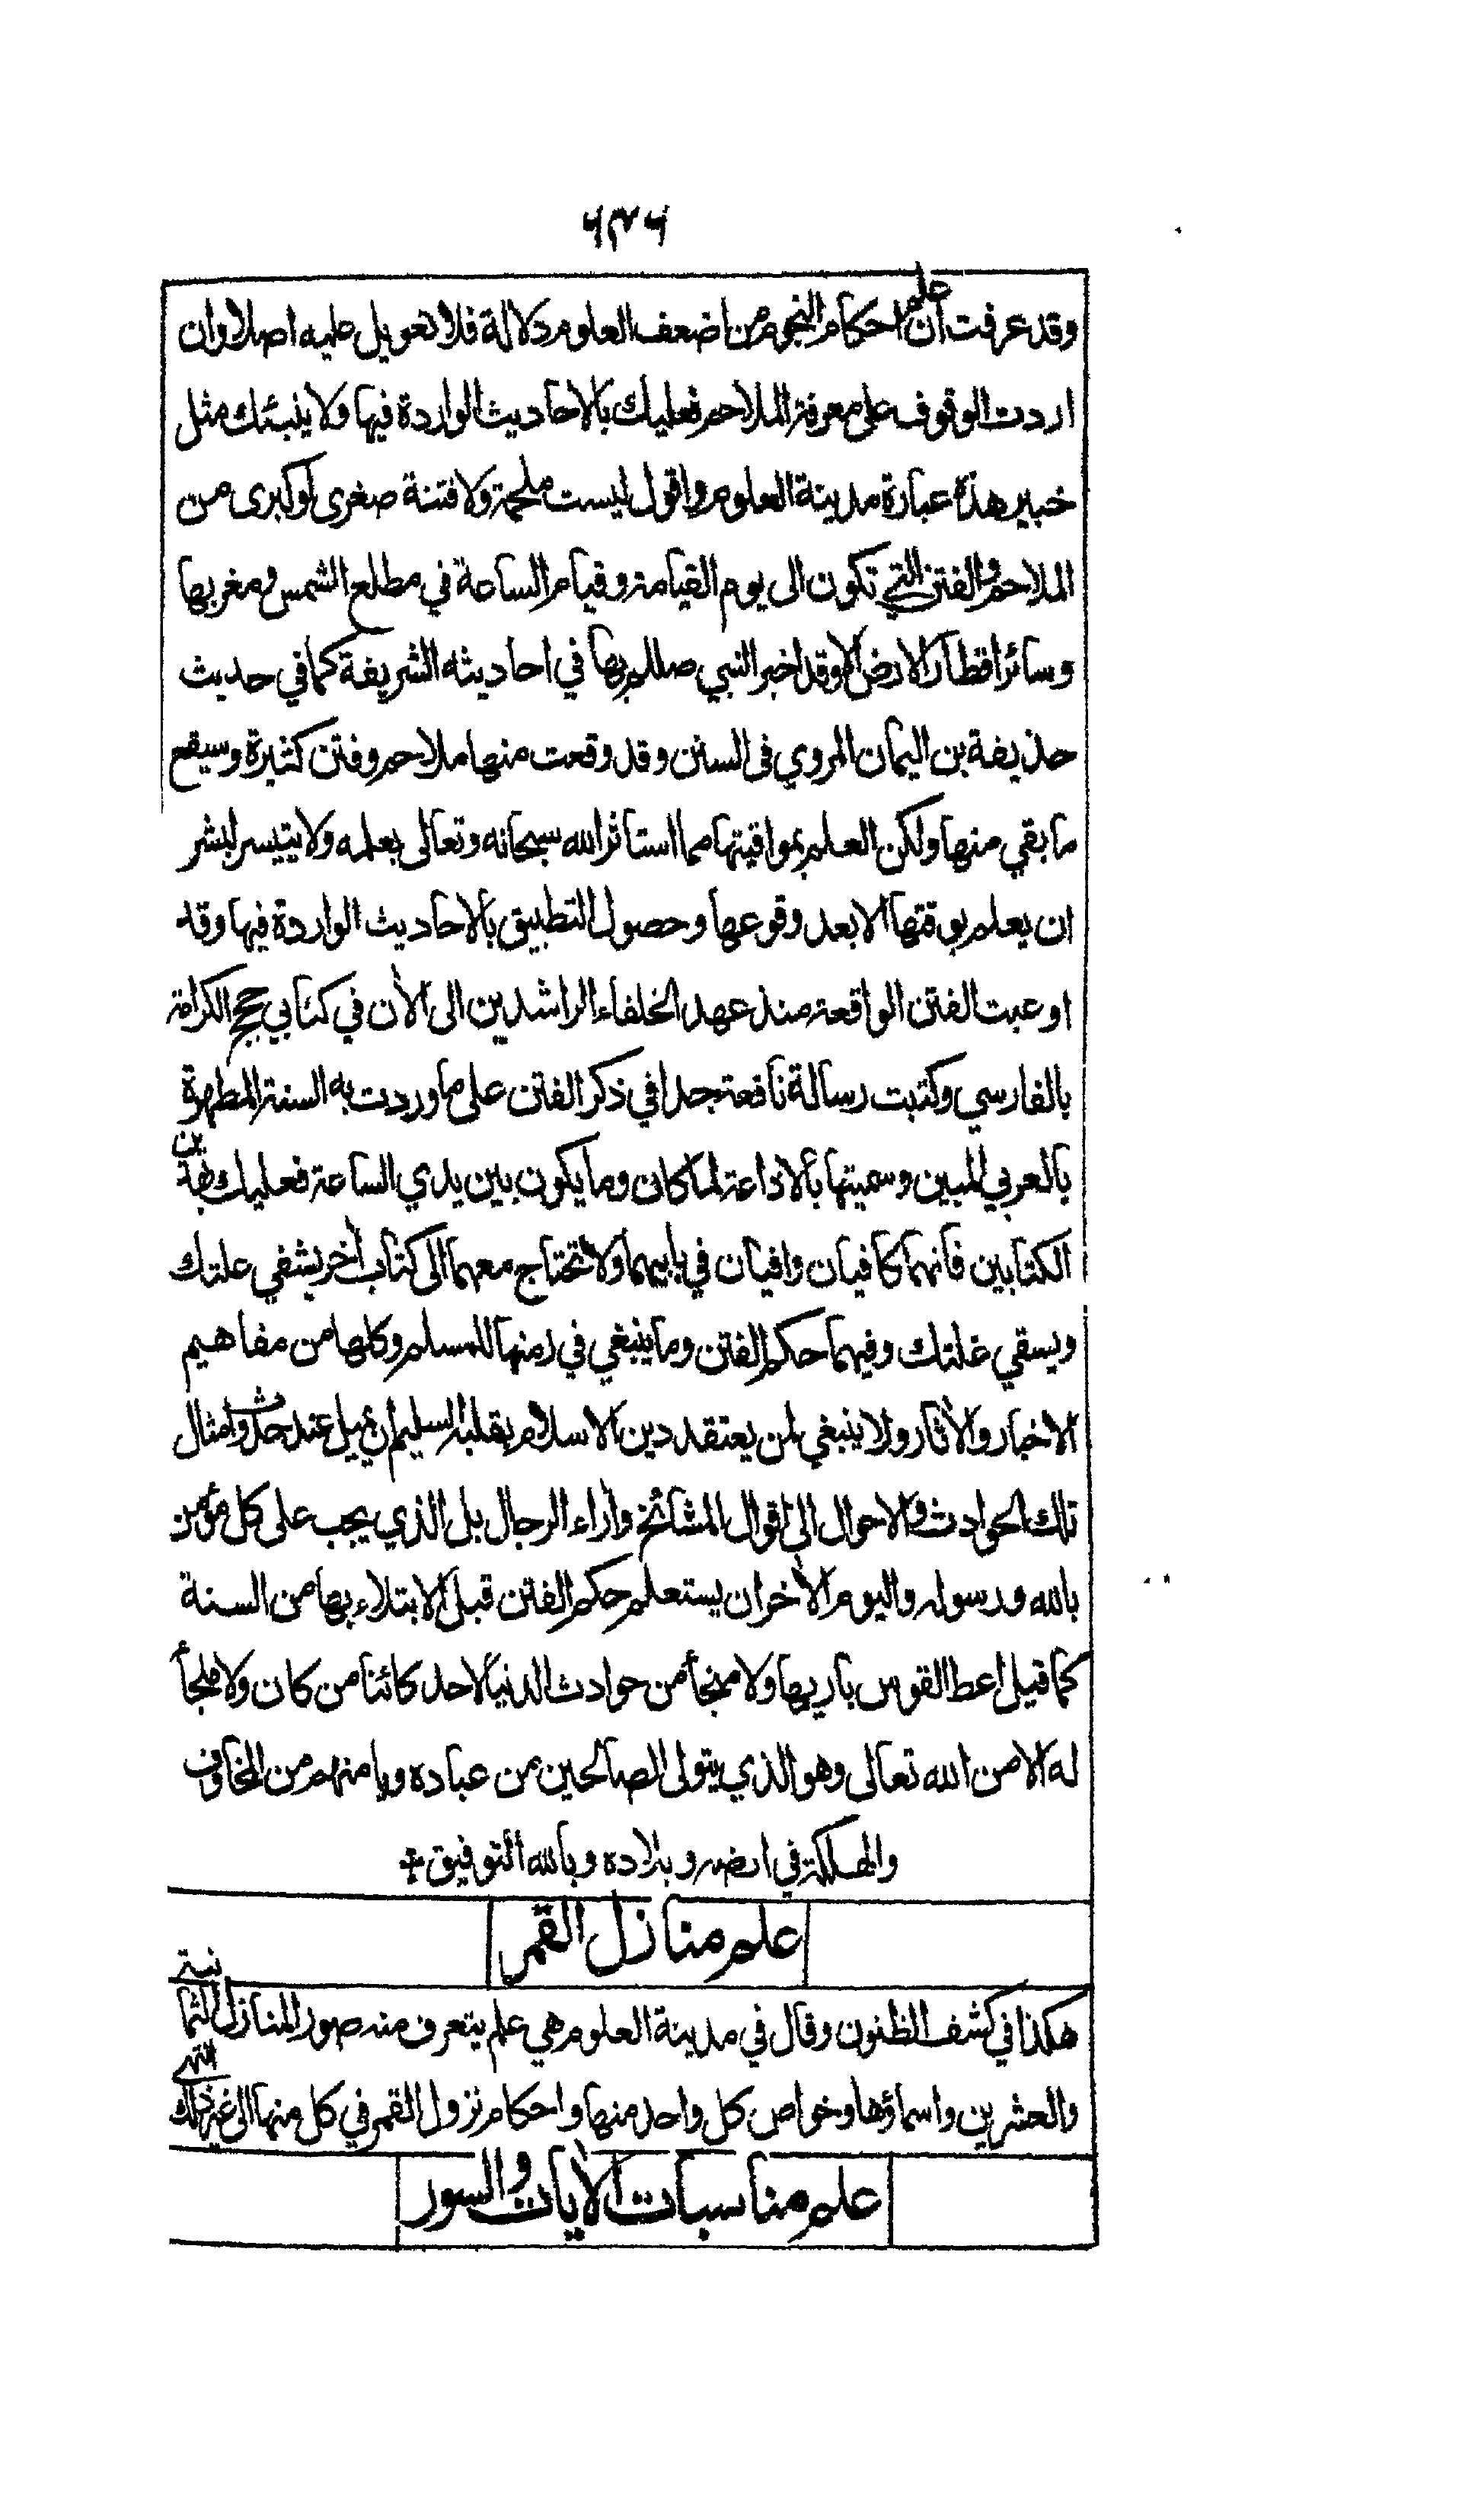 ٦٣٦
وقد عرفت ان علم احكام النجوم من اضعف العلوم دلالة فلا تعويل عليه اصلا وان
اردت الوقوف على معرفة الملاحم فعليك بالاحاديث الواردة فيها ولا ينبئك مثل
خبير هذه عبارة مدينة العلوم واقول ليست ملحمة ولا فتنة صغرى او كبرى من
الملاحم والفتن التي تكون الى يوم القيامة وقيام الساعة في مطلع الشمس ومغربها
وسائر اقطار الارض الا وقد اخبر النبي صللم بها في احاديثه الشريفة كما في حديث
حذيفة بن اليمان المروي فى السنن وقد وقعت منها ملاحم وفتن كثيرة وسيقع
ما بقي منها ولكن العلم بمواقيتها مما استاثر الله سبحانه وتعالى بعلمه ولا يتيسر لبشر
ان يعلم بوقتها الا بعد وقوعها وحصول التطبيق بالاحاديث الواردة فيها وقد
اوعبت الفتن الواقعة منذ عهد الخلفاء الراشدين الى الآن في كتابي حجج الكرامة
بالفارسي وكتبت رسالة نافعة جدا في ذكر الفتن على ما وردت به السنة المطهرة
بالعربي المبين وسميتها بالاذاعة لما كان وما يكون بين يدي الساعة فعليك بهذين
الكتابين فانهما كافيان وافيان في بابيهما ولا تحتاج معهما الى كتاب آخر يشفي علتك
ويسقي غلتك وفيهما حكم الفتن وما ينبغي في زمنها للمسلم وكلها من مفاهيم
الاخبار والآثار ولا ينبغي لمن يعتقد دين الاسلام بقلبه السليم ان يميل عند حدوث امثال
تلك الحوادث والاحوال الى اقوال المشائخ وآراء الرجال بل الذي يجب على كل مؤمن
بالله ورسوله واليوم الآخر ان يستعلم حكم الفتن قبل الابتلاء بها من السنة
كما قيل اعط القوس باريها ولا منجأ من حوادث الدنيا لاحد كائنا من كان ولا ملجأ
له الا من الله تعالى وهو الذي يتولى الصالحين من عباده ويامنهم من المخاوف
والمهلكة في ارضه وبلاده وبالله التوفيق
علم منازل القمر
هكذا في كشف الظنون وقال في مدينة العلوم هي علم يتعرف منه صور المنازل الثمانية
والعشرين واسماؤها وخواص كل واحد منها واحكام نزول القمر في كل منها الى غير ذلك انتهى
علم مناسبات الآيات والسور